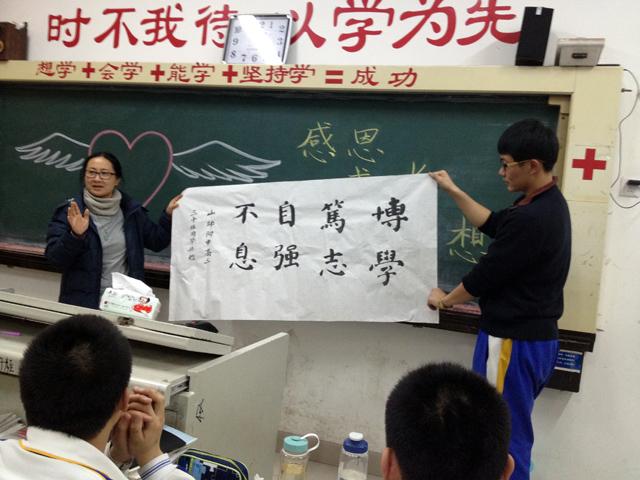 时不我待 以学为先
想学+会学+能学+坚持学=成功
感恩
想
博學
篤志
自强
不息
山師附中高二